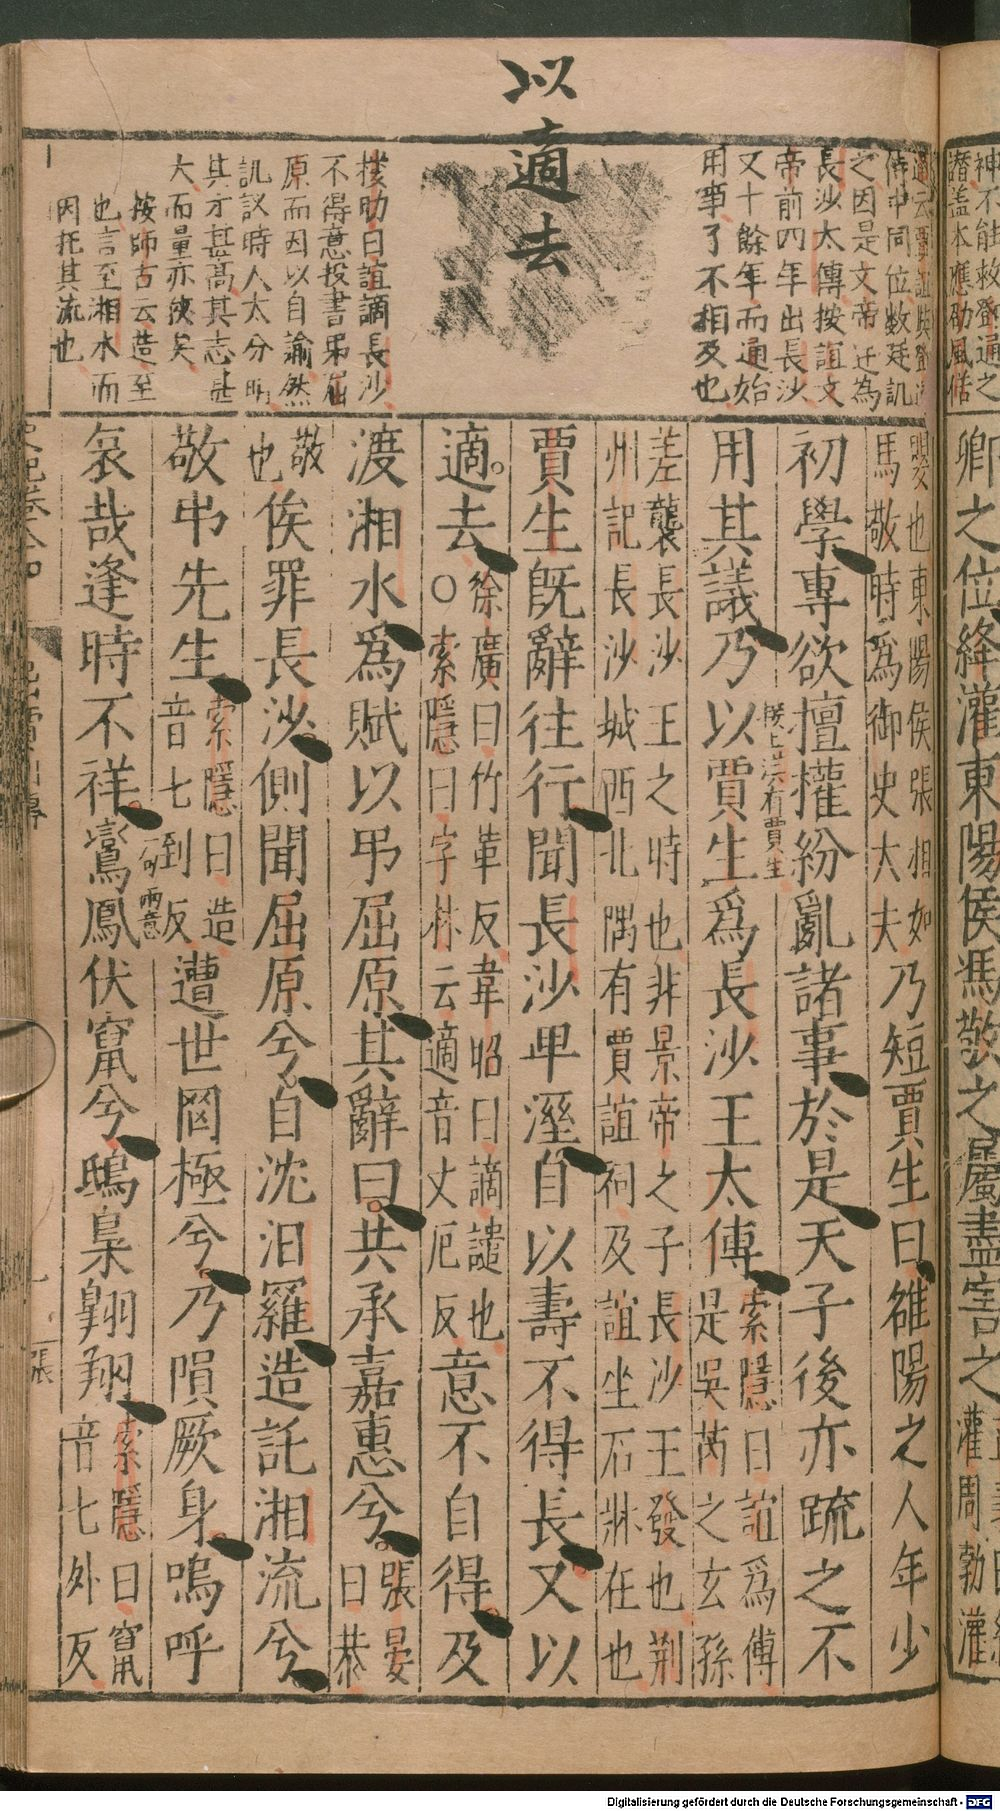 以適去
之因是文帝迁為
長沙太傳按誼文
帝前四年出長沙
又十餘年而通始
用事了不相及也
按劭曰誼謫長沙
不得意投書弔屈
原而因以自諭然
譏議時人太分明
其才甚高其志甚
大而量亦狹矣
按師古云造至
也言至湘水而
因托其流也
卿之位絳灌東陽侯馮敬之屬盡害之
曖也東陽侯張相如
馬敬時為御史大夫
乃短賈生曰雒陽之人年少
初學專欲擅權紛亂諸事於是天子後亦疏之不
用其議乃以賈生為長沙王太傳
索隱曰誼為傅
是吳芮之玄孫
差襲長沙王之時也非景帝之子長沙王發也荆
州記長沙城西北隅有賈誼祠及誼坐石牀在也
賈生既辭往行聞長沙卑溼自以壽不得長又以
適去
徐廣曰竹革反韋昭曰謫譴也
○索隱曰字林云適音丈厄反
意不自得及
渡湘水為賦以弔屈原其辭曰共承嘉惠兮
張晏
曰恭
敬
也
俟罪長沙側聞屈原兮自沈汨羅造託湘流兮
敬弔先生
索隱曰造
音七到反
遭世罔極兮乃隕厥身嗚呼
哀哉逢時不祥鸞鳳伏竄兮鴟梟翱翔
索隱曰竄
音七外反
Digitalisierung gefördert durch die Deutsche Forschungsgemeinschaft - DFG